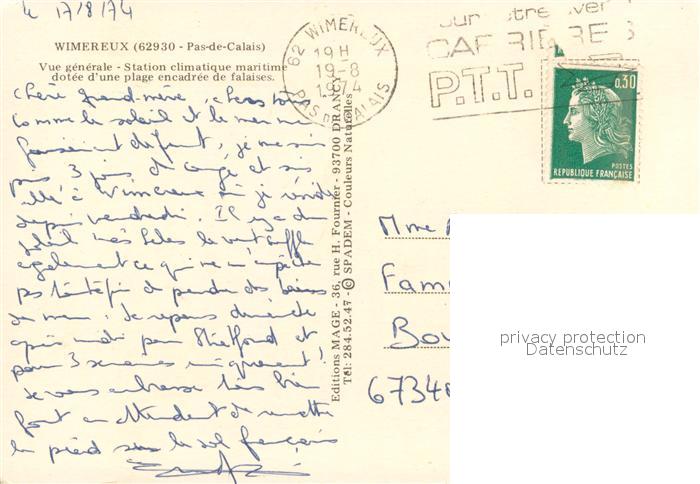 le 17/8/74
WIMEREUX (62930 - Pas-de-Calais)
Vue générale - Station climatique maritime
dotée d'une plage encadrée de falaises.
Chère grand-mère, chers tous
comme le soleil et la mer me
faisaient défaut, je me suis
pris 3 jours de congé et suis
allé à Wimereux où je réside
depuis vendredi. Il y a du
soleil mais le vent souffle
également ce qui ne m'empêche
pas de prendre des bains
de mer. Je repars dimanche
après-midi pour et
pour 3 semaines uniquement,
Je vous embrasse très bien
fort en attendant de remettre
les pieds sur le sol français
62 WIMEREUX
19 H
19-8
1974
PAS DE CALAIS
CARRIERES
P.T.T.
0,30
POSTES
REPUBLIQUE FRANÇAISE
Editions MAGE - 36, rue H. Fournier - 93700 DRANCY
Tél: 284.52.47 - © SPADEM - Couleurs Naturelles
Mme
Fam
Bou
6734
privacy protection
Datenschutz